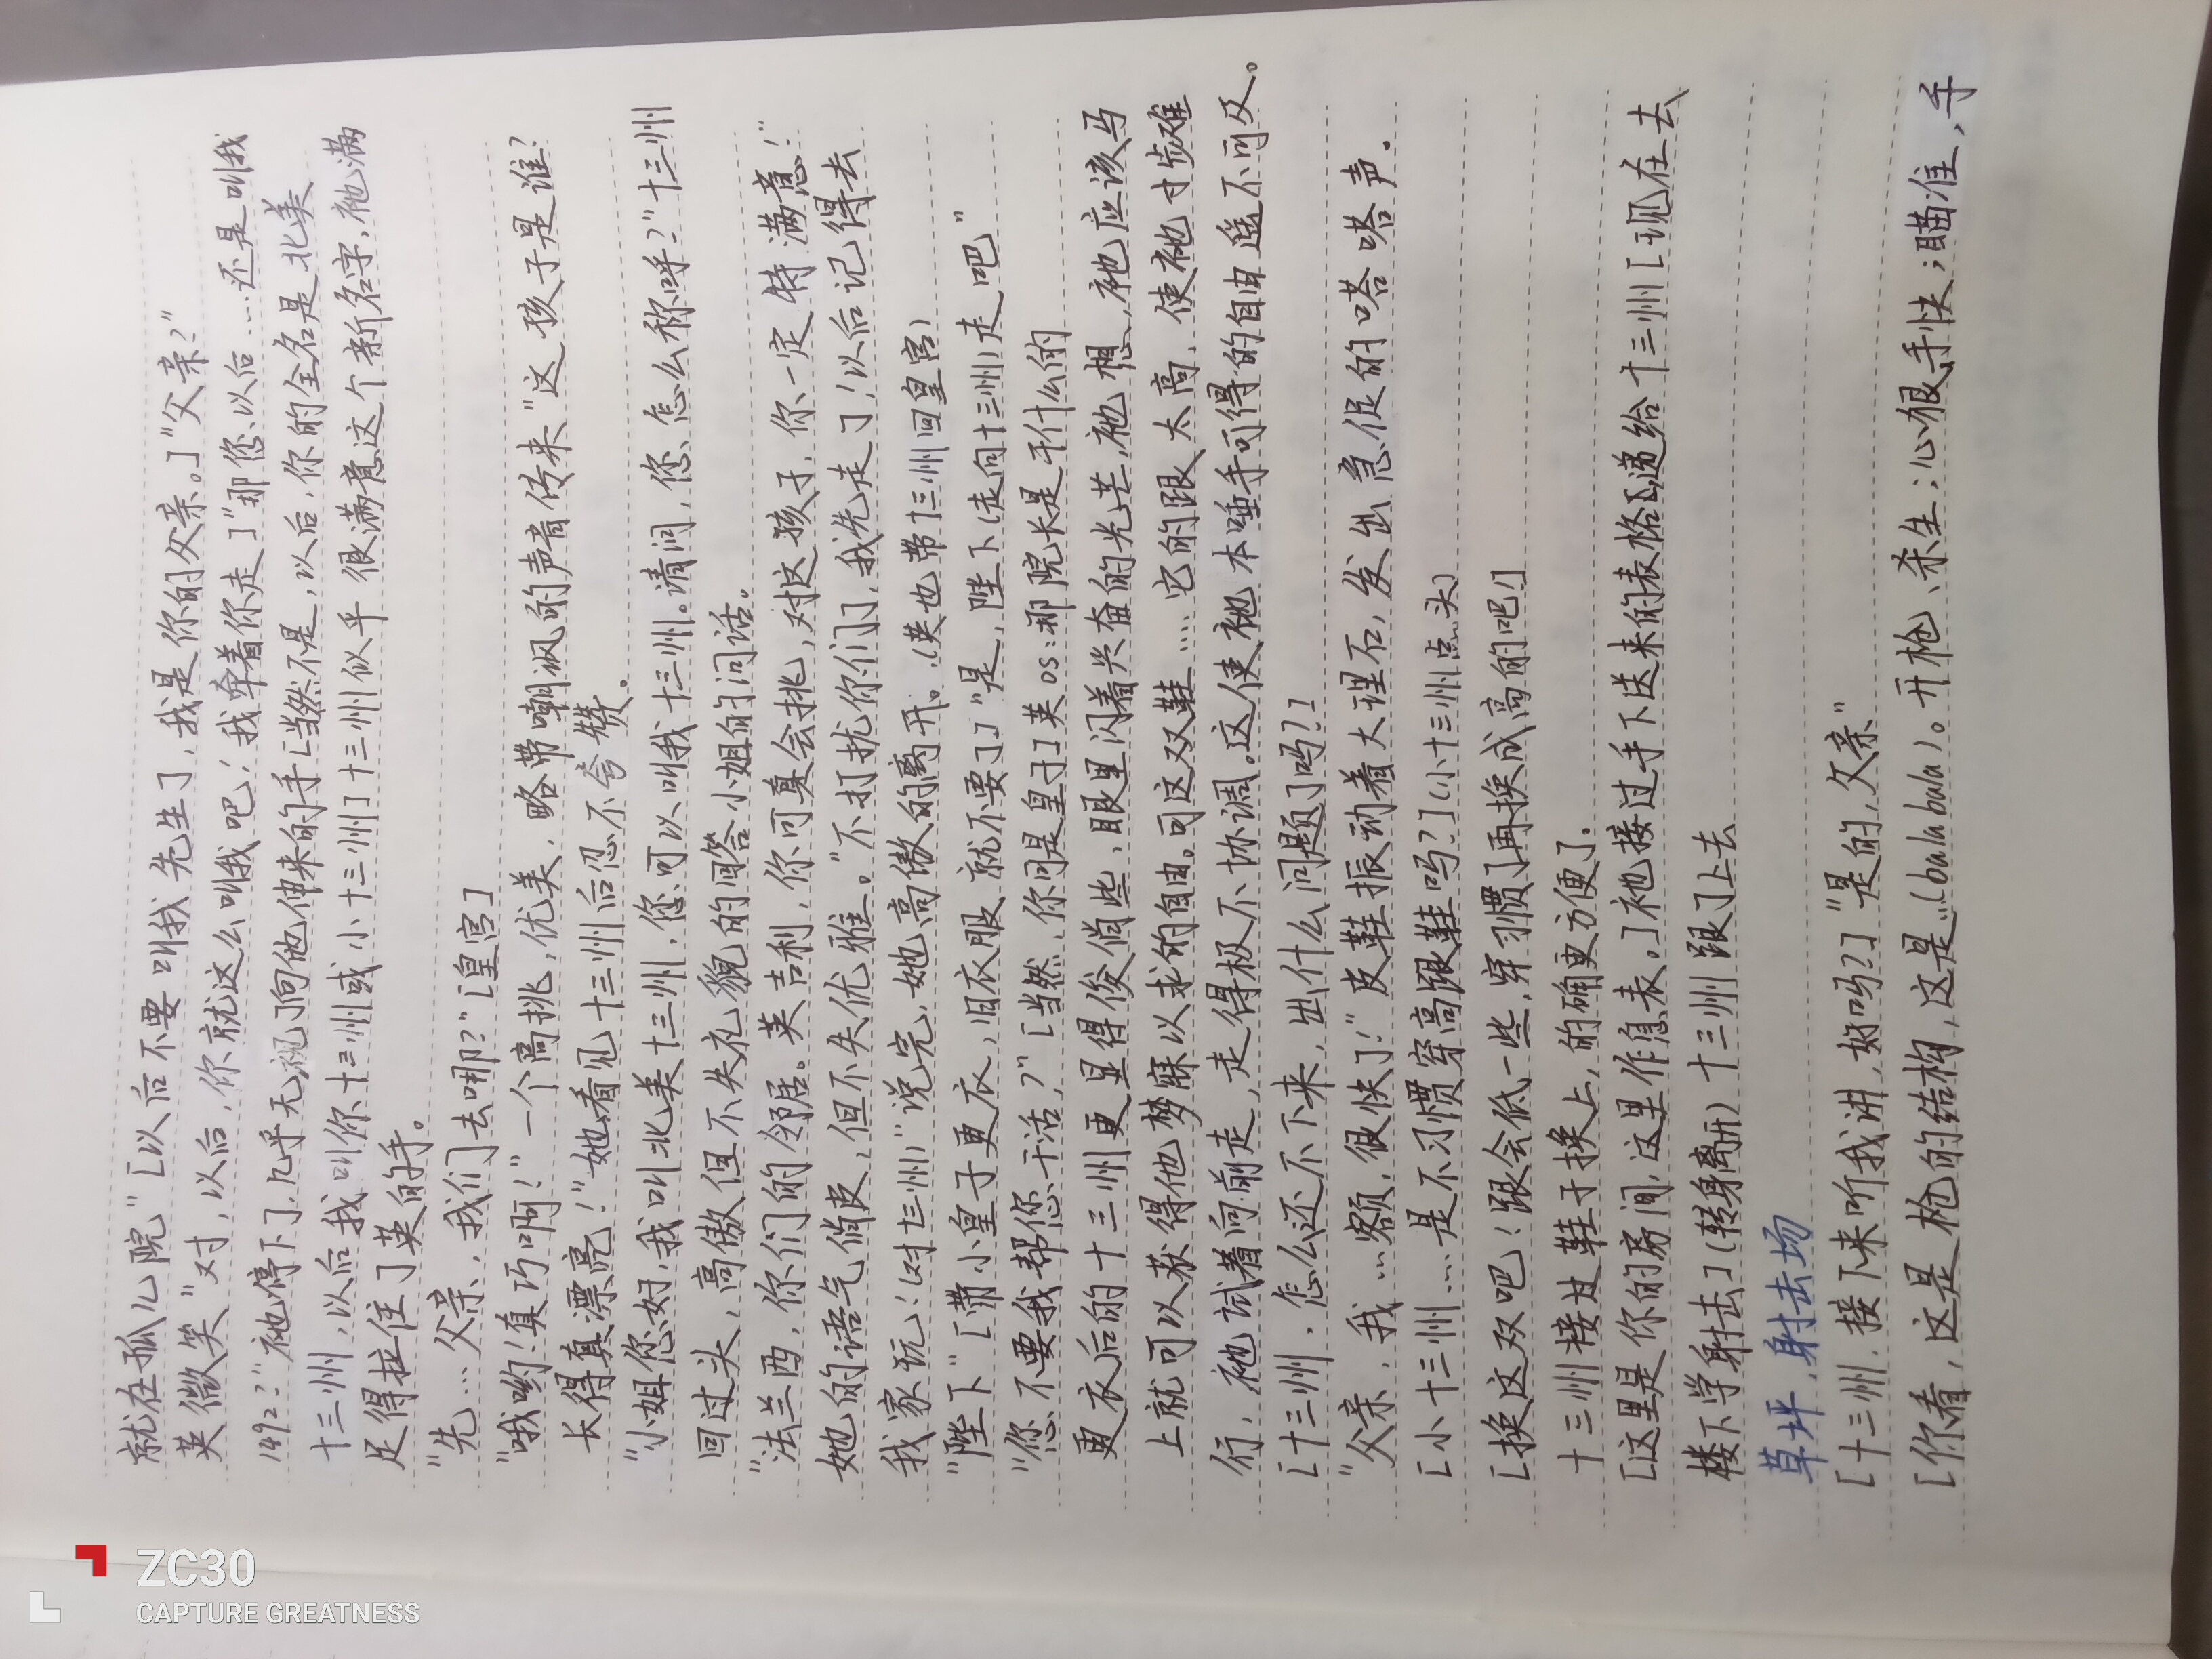 就在孤儿院"[以后不要叫我先生了,我是你的父亲。]"父亲?"
英微笑"对,以后,你就这么叫我吧!我牵着你走]"那您、以后…还是叫我
1492?"祂停下了,几乎无视了向他伸来的手[当然不是,以后,你的全名是北美
十三州,以后我叫你十三州或小十三州]十三州似乎很满意这个新名字,祂满
足得拉住了英的手。
"先…父亲,我们去哪?"[皇宫]
"哦哟!真巧啊!"一个高挑,优美,略带嘲讽的声音传来"这孩子是谁?
长得真漂亮!"她看见十三州后忍不夸赞。
"小姐您好,我叫北美十三州,您可以叫我十三州。请问,您怎么称呼?"十三州
回过头,高傲但不失礼貌的回答小姐的问话。
"法兰西,你们的邻居。英吉利,你可真会挑,对这孩子,你一定特满意!"
她的语气俏皮,但不失优雅。"不打扰你们了,我先走了!以后记得去
我家玩!(对十三州)"说完,她高傲的离开。(英也带十三州回皇宫)
"陛下"[带小皇子更衣,旧衣服就不要了]"是,陛下(走向十三州)走吧"
"您不要我帮您干活,?"[当然,你可是皇子]英os:那院长是干什么的
更衣后的十三州更显得俊俏些,眼里闪着兴奋的光芒,祂想,祂应该马
上就可以获得他梦寐以求的自由。可这双鞋……它的跟太高,使祂寸步难
行,祂试着向前走,走得极不协调。这使祂本唾手可得的自由遥不可及。
[十三州,怎么还不下来,出什么问题了吗?]
"父亲,我…额,很快了!"皮鞋振动着大理石,发出急促的嗒嗒声.
[小十三州…是不习惯穿高跟鞋吗?](小十三州点头)
[换这双吧!跟会低一些,穿习惯了再换成高的吧!]
十三州接过鞋子换上,的确更方便了.
[这里是你的房间,这里作息表。]祂接过手下送来的表格递给十三州[现在去
楼下学射击](转身离开)十三州跟了上去
草坪,射击场
[十三州,接下来听我讲,好吗?]"是的,父亲"
[你看,这是枪的结构,这是…(balabala)。开枪、杀生;心狠手快;瞄准,手
ZC30
CAPTURE GREATNESS